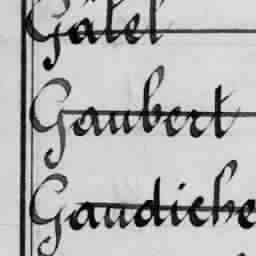 Gâtel
Gaubert
Gaudiche